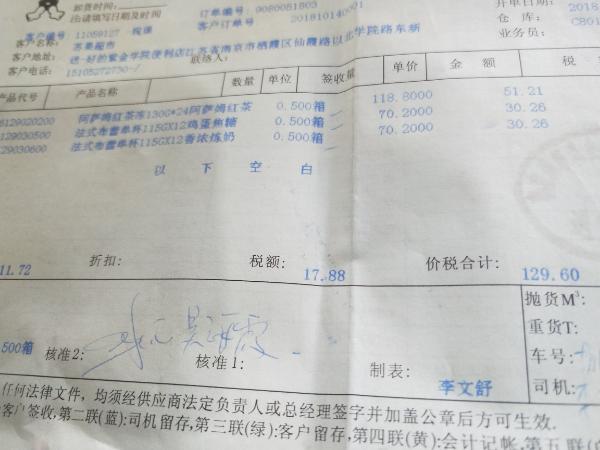 卸货时间:
注:请填写日期及时间
订单编号: 9080051803
客户订单号 201810140001
开单日期: 2018
仓 库: C801
业务员:
客户编号 11059127
客户名称: 苏果超市
客户地址: 送-好的紫金学院便利店江苏省南京市栖霞区仙霞路以北学院路东新
客户电话: 联络人:
产品代号 产品名称 数量 单位 签收量 单价 金额 税
6129020200 阿萨姆红茶冻130G*24阿萨姆红茶 0.500箱 118.8000 51.21
129030500 法式布蕾单杯115GX12鸡蛋焦糖 0.500箱 70.2000 30.26
29030600 法式布蕾单杯115GX12香浓炼奶 0.500箱 70.2000 30.26
以 下 空 白
11.72 折扣: 税额: 17.88 价税合计: 129.60
抛货M³:
重货T:
500箱 核准2: 核准1: 制表: 李文舒
车号:
司机:
任何法律文件，均须经供应商法定负责人或总经理签字并加盖公章后方可生效.
客户签收,第二联(蓝):司机留存,第三联(绿):客户留存,第四联(黄):会计记帐,第五联